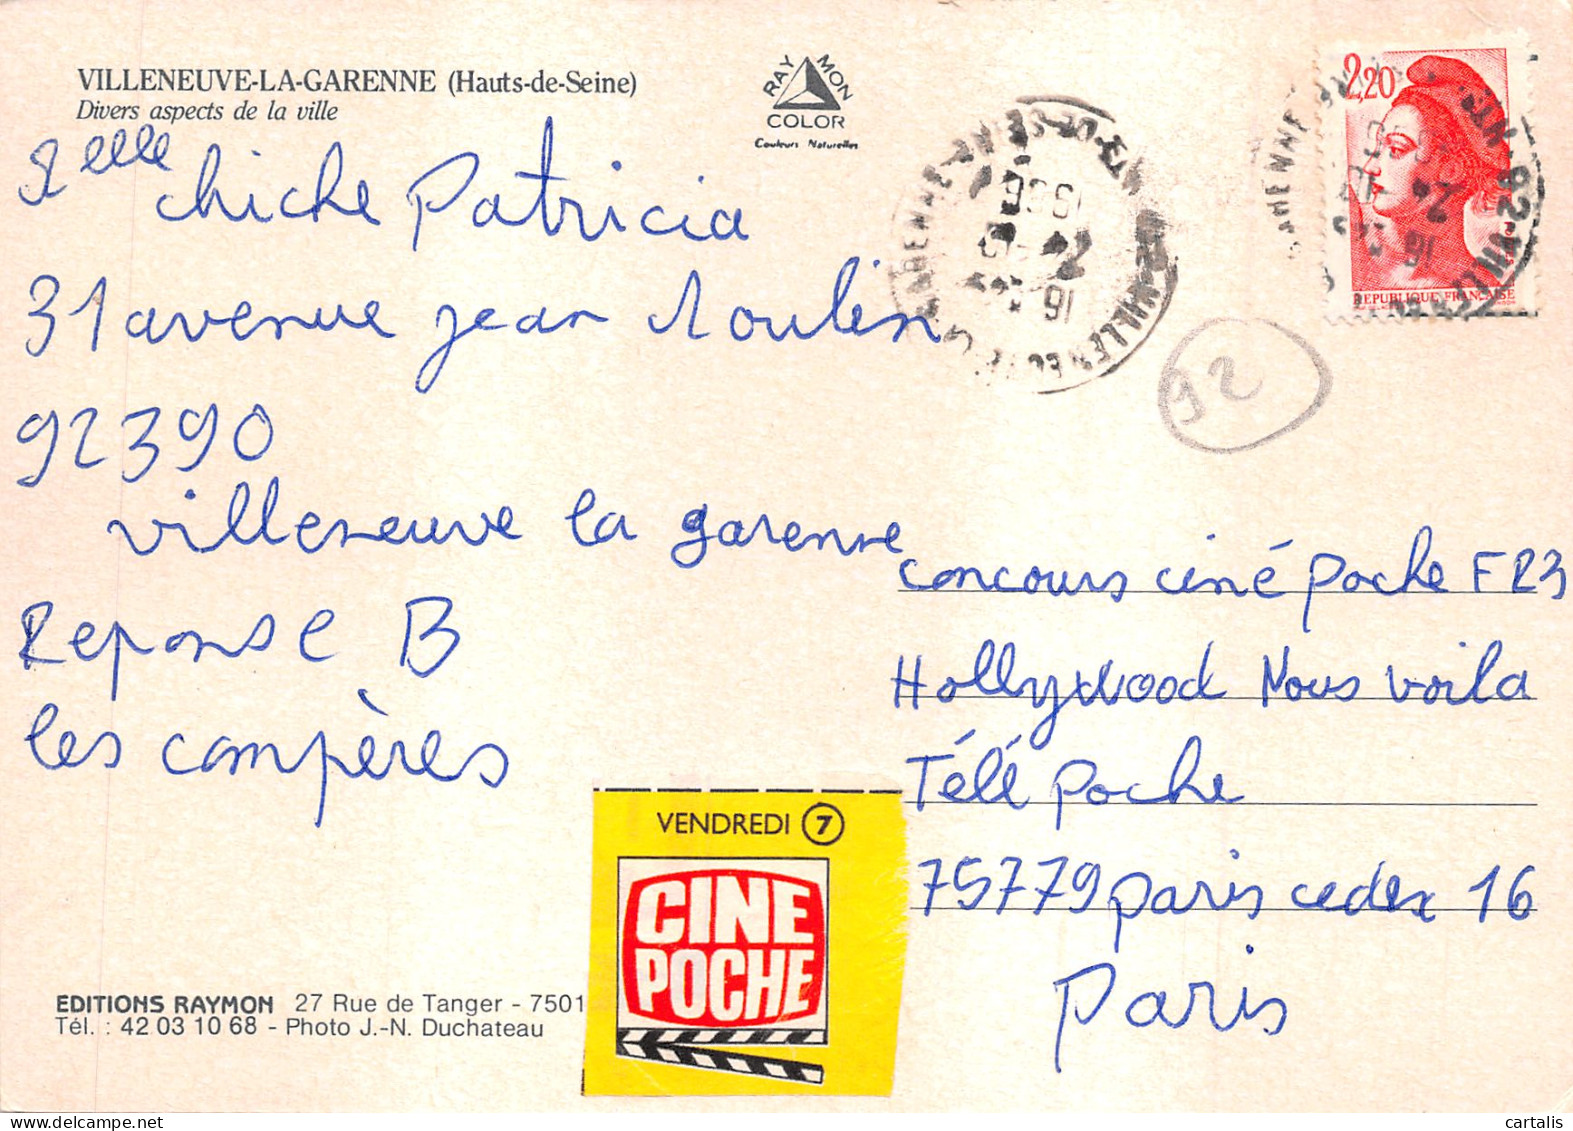 VILLENEUVE-LA-GARENNE (Hauts-de-Seine)
Divers aspects de la ville
RAYMON
COLOR
Couleurs Naturelles
2,20
REPUBLIQUE FRANÇAISE
chiche Patricia
31 avenue jean Moulin
92390
villeneuve la garenne
Reponse B
les compères
92
concours ciné poche FR3
Hollywood Nous voila
Télé poche
75779 paris cedex 16
Paris
VENDREDI 7
CINE
POCHE
EDITIONS RAYMON 27 Rue de Tanger - 7501
Tél. : 42 03 10 68 - Photo J.-N. Duchateau
cartalis
delcampe.net